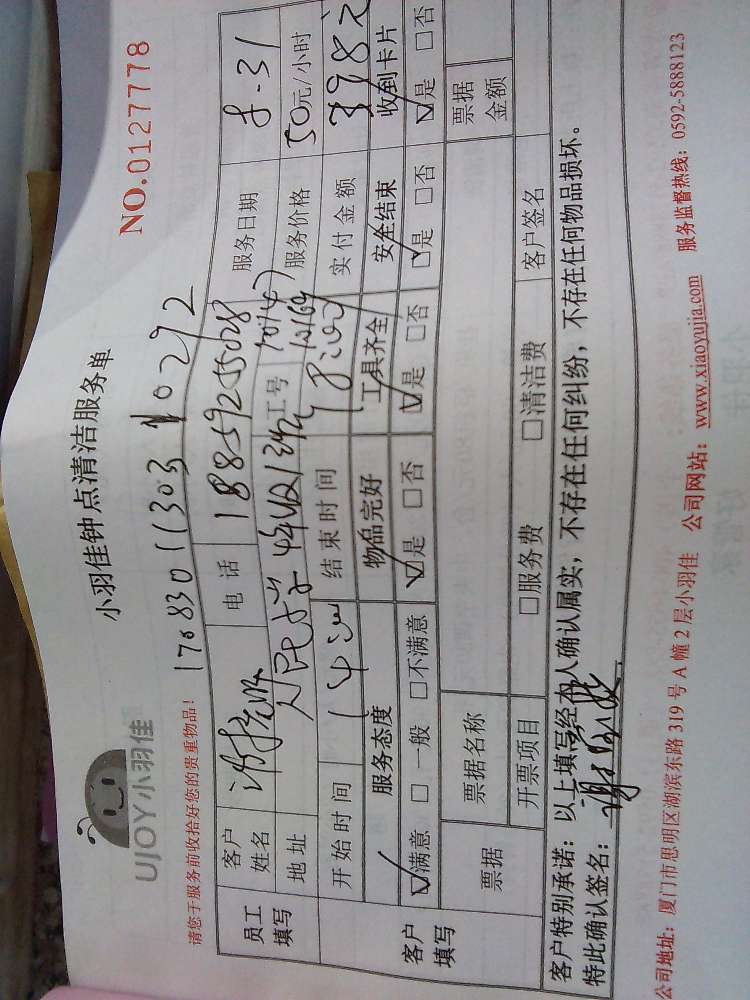 UJOY小羽佳
小羽佳钟点清洁服务单
NO.0127778
请您于服务前收拾好您的贵重物品!
17083011303 10292
员工填写
客户姓名
电话 18859255028
服务日期 8.31
地址
工号
服务价格 50元/小时
开始时间
结束时间
实付金额 398元
客户填写
服务态度 物品完好 工具齐全 安全结束 收到卡片
☑满意 □一般 □不满意 ☑是 □否 ☑是 □否 ☑是 □否 ☑是 □否
票据
票据名称
票据金额
开票项目 □服务费 □清洁费
客户签名
客户特别承诺:以上填写经本人确认属实,不存在任何纠纷,不存在任何物品损坏。
特此确认签名:
公司地址:厦门市思明区湖滨东路319号A幢2层小羽佳 公司网站:www.xiaoyujia.com 服务监督热线:0592-5888123